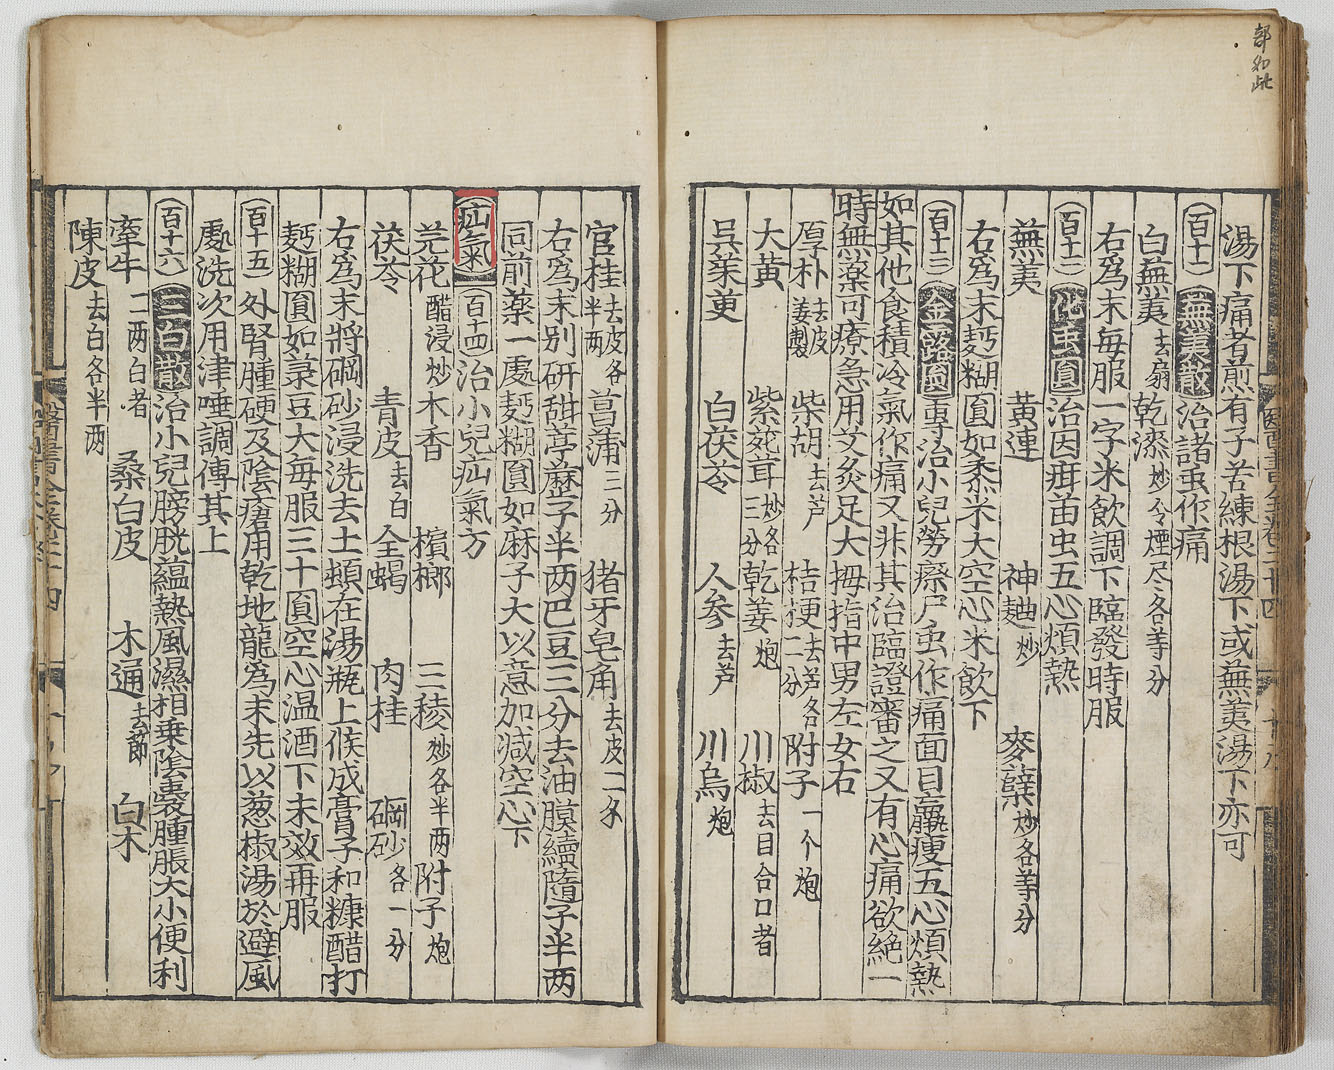 部如此
湯下痛者煎有子苦練根湯下或蕪荑湯下亦可
百十一 蕪荑散 治諸虫作痛
白蕪荑去扇 乾漆炒令煙尽各等分
右為末每服一字米飲調下臨發時服
百十二 化虫圓 治因疳蛔虫五心煩熱
蕪荑 黃連 神麯炒 麥糵炒各等分
右為末麪糊圓如黍米大空心米飲下
百十三 金露圓 專治小兒勞瘵尸虫作痛面目羸瘦五心煩熱
如其他食積冷氣作痛又非其治臨證審之又有心痛欲絶一
時無藥可療急用艾灸足大拇指中男左女右
厚朴去皮姜製 柴胡去芦 桔梗去芦各二分 附子一个炮
大黃 紫菀茸炒各三分 乾姜炮 川椒去目合口者
吳茱萸 白茯苓 人参去芦 川烏炮
官桂去皮各半两 菖蒲三分 猪牙皂角去皮二分
右為末别研甜葶藶子半两巴豆三分去油膜續隨子半两
同前藥一處麪糊圓如麻子大以意加减空心下
疝氣 百十四 治小兒疝氣方
芫花醋浸炒 木香 檳榔 三稜炒各半两 附子炮
茯苓 青皮去白 全蝎 肉桂 硇砂各一分
右為末將硇砂浸洗去土頓在湯瓶上候成膏子和糠醋打
麪糊圓如菉豆大每服三十圓空心温酒下未效再服
百十五 外腎腫硬及陰瘡用乾地龍為末先以葱椒湯於避風
處洗次用津唾調傅其上
百十六 三白散 治小兒膀胱蘊熱風濕相乗陰囊腫脹大小便利
牽牛二两白者 桑白皮 木通去節 白朮
陳皮去白各半两